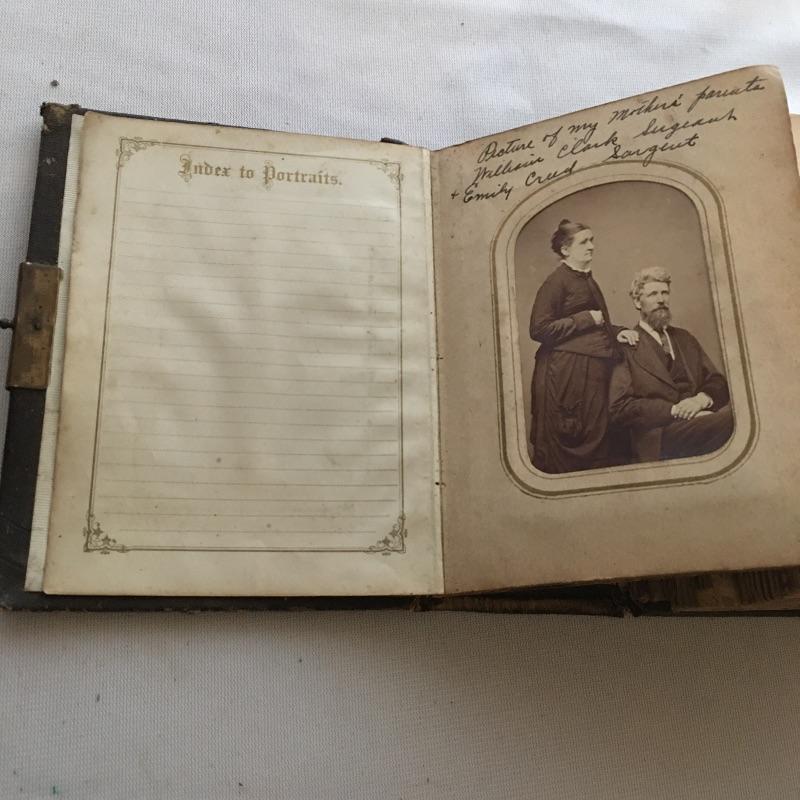 Index to Portraits.
Picture of my Mothers' parents
William Clark Sergeant
+ Emily Creed Sargent